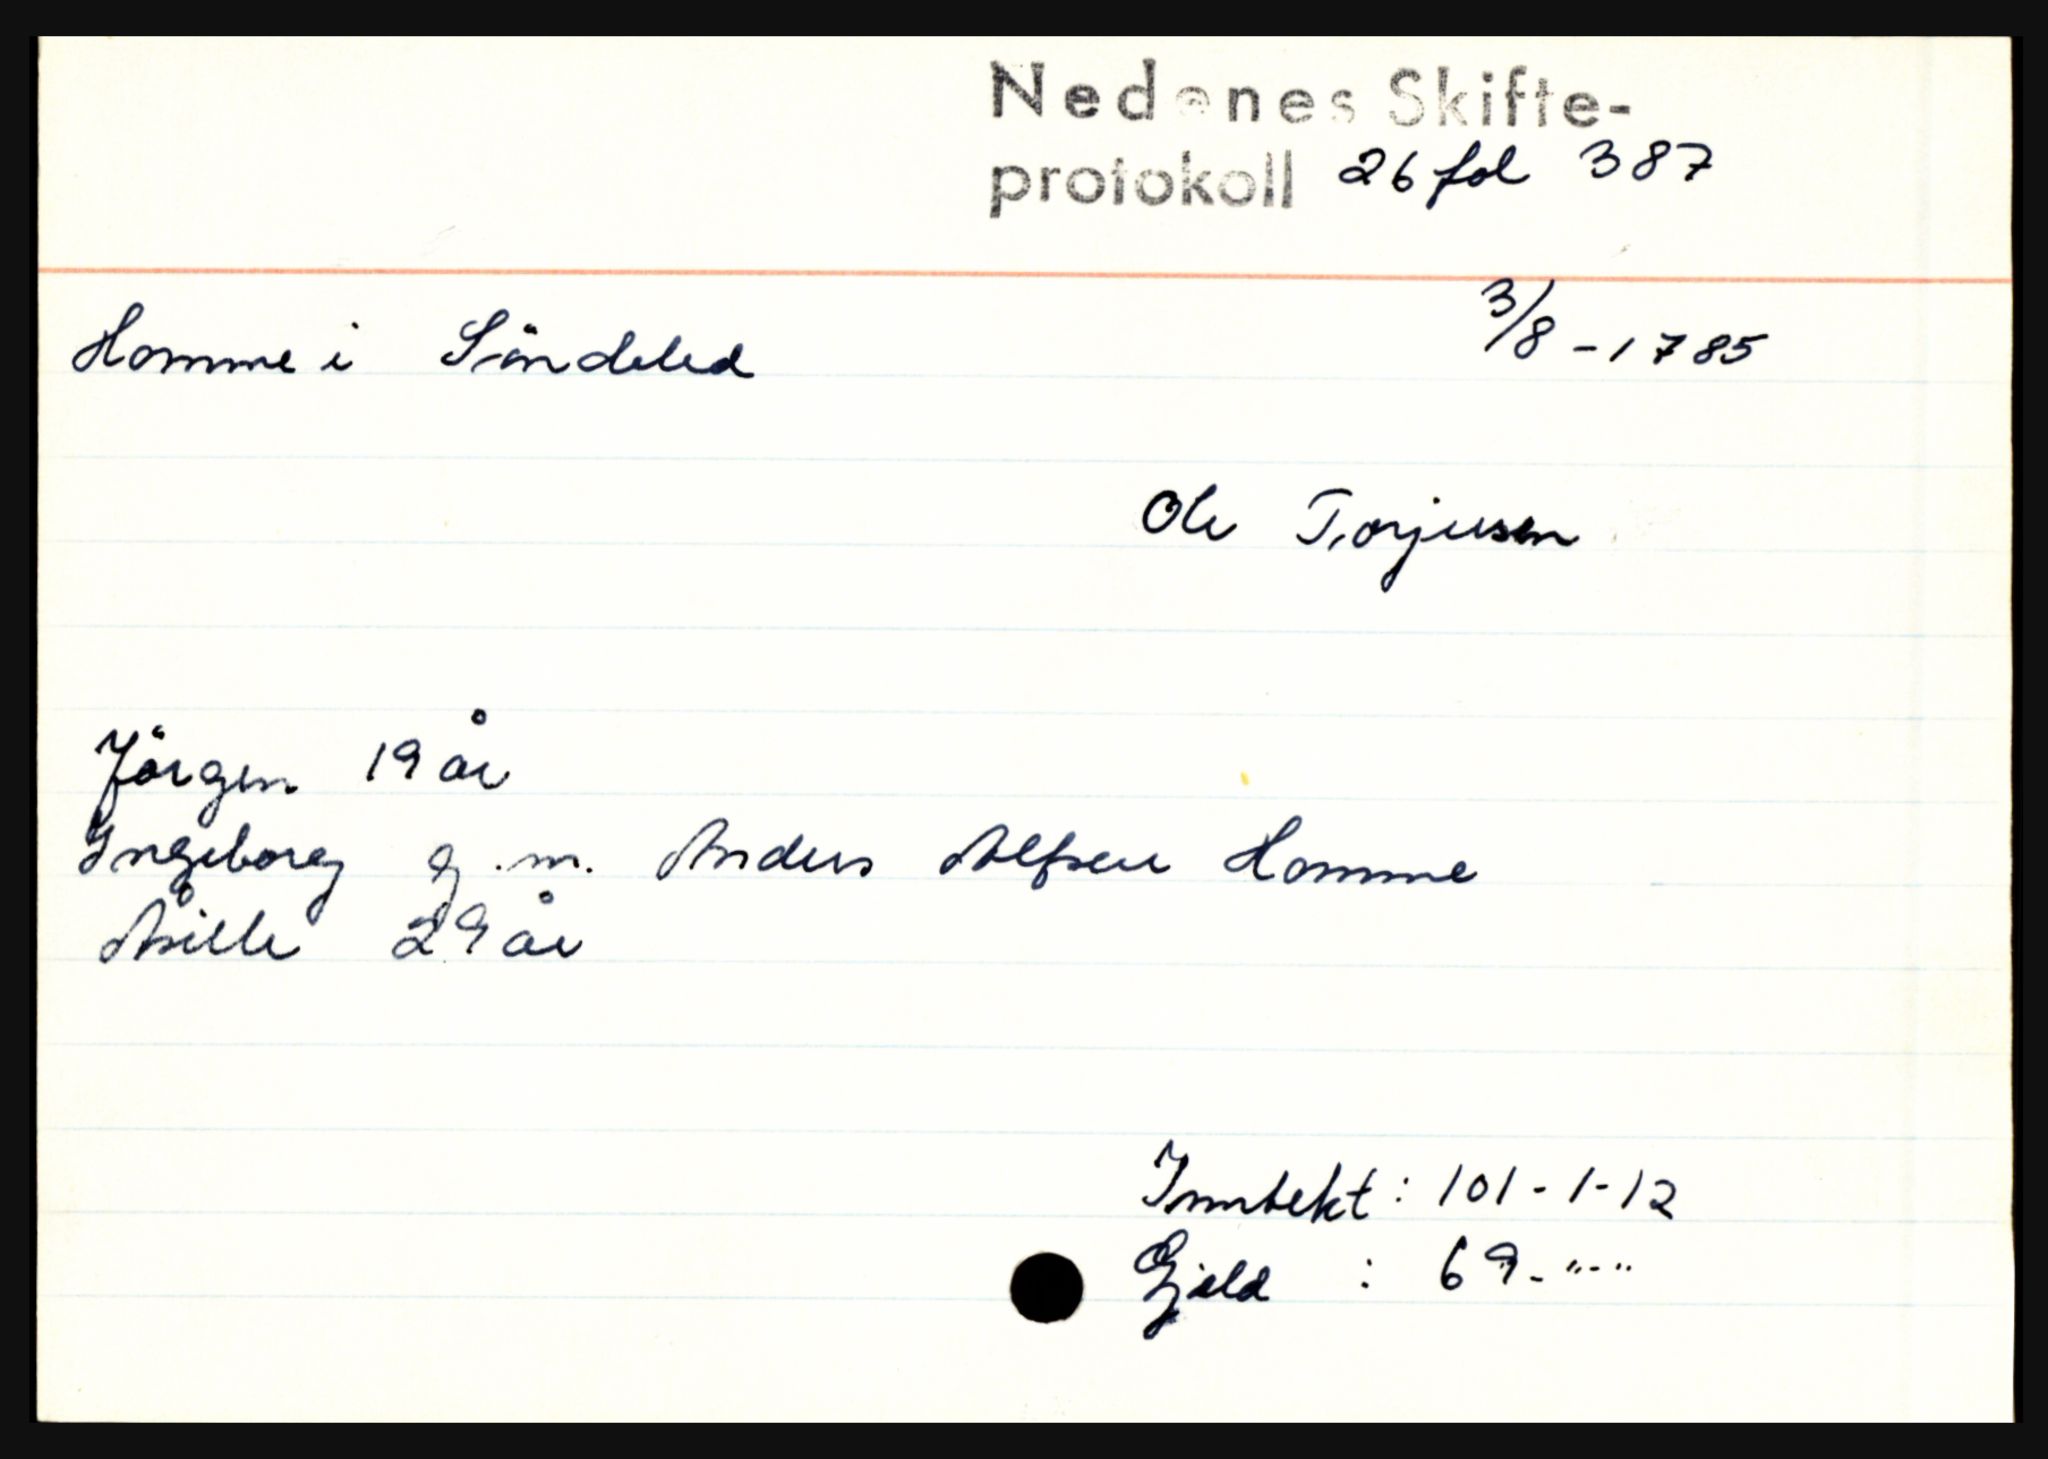 Nedenes Skifte-
protokoll 26 fol 387
Homme i Söndeled 3/8-1785
Ole Torjusen
Jörgen 19 år
Ingeborg g.m. Anders Alfsen Homme
Åsille 29 år
Inntekt: 101-1-12
Gjeld : 69-"-"